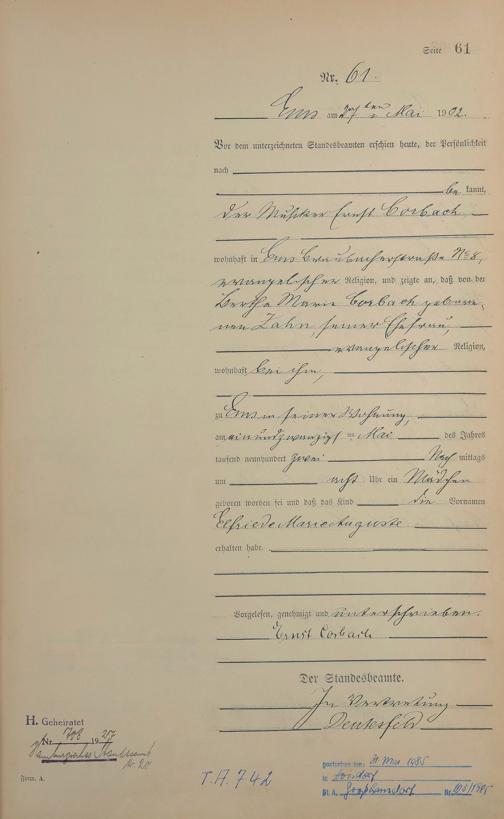 Seite 61
Nr. 61.
Ems am ten Mai 1902.
Vor dem unterzeichneten Standesbeamten erschien heute, der Persönlichkeit
nach
be kannt,
der Musiker Ernst Corbach
wohnhaft in Ems Braubacherstraße No 8,
evangelischer Religion, und zeigte an, daß von der
Bertha Marie Corbach gebore-
nen Zahn, seiner Ehefrau,
evangelischer Religion,
wohnhaft bei ihm,
zu Ems in seiner Wohnung,
am einundzwanzigst en Mai des Jahres
tausend neunhundert zwei Nach mittags
um acht Uhr ein Mädchen
geboren worden sei und daß das Kind die Vornamen
Elfriede Marie Auguste
erhalten habe.
Vorgelesen, genehmigt und unterschrieben.
Ernst Corbach
Der Standesbeamte.
In Vertretung
H. Geheiratet
Nr. 708 1927
Form. A.
T.A. 742
gestorben am: 31. Mai 1985
in
St. A. Nr. 105/1985